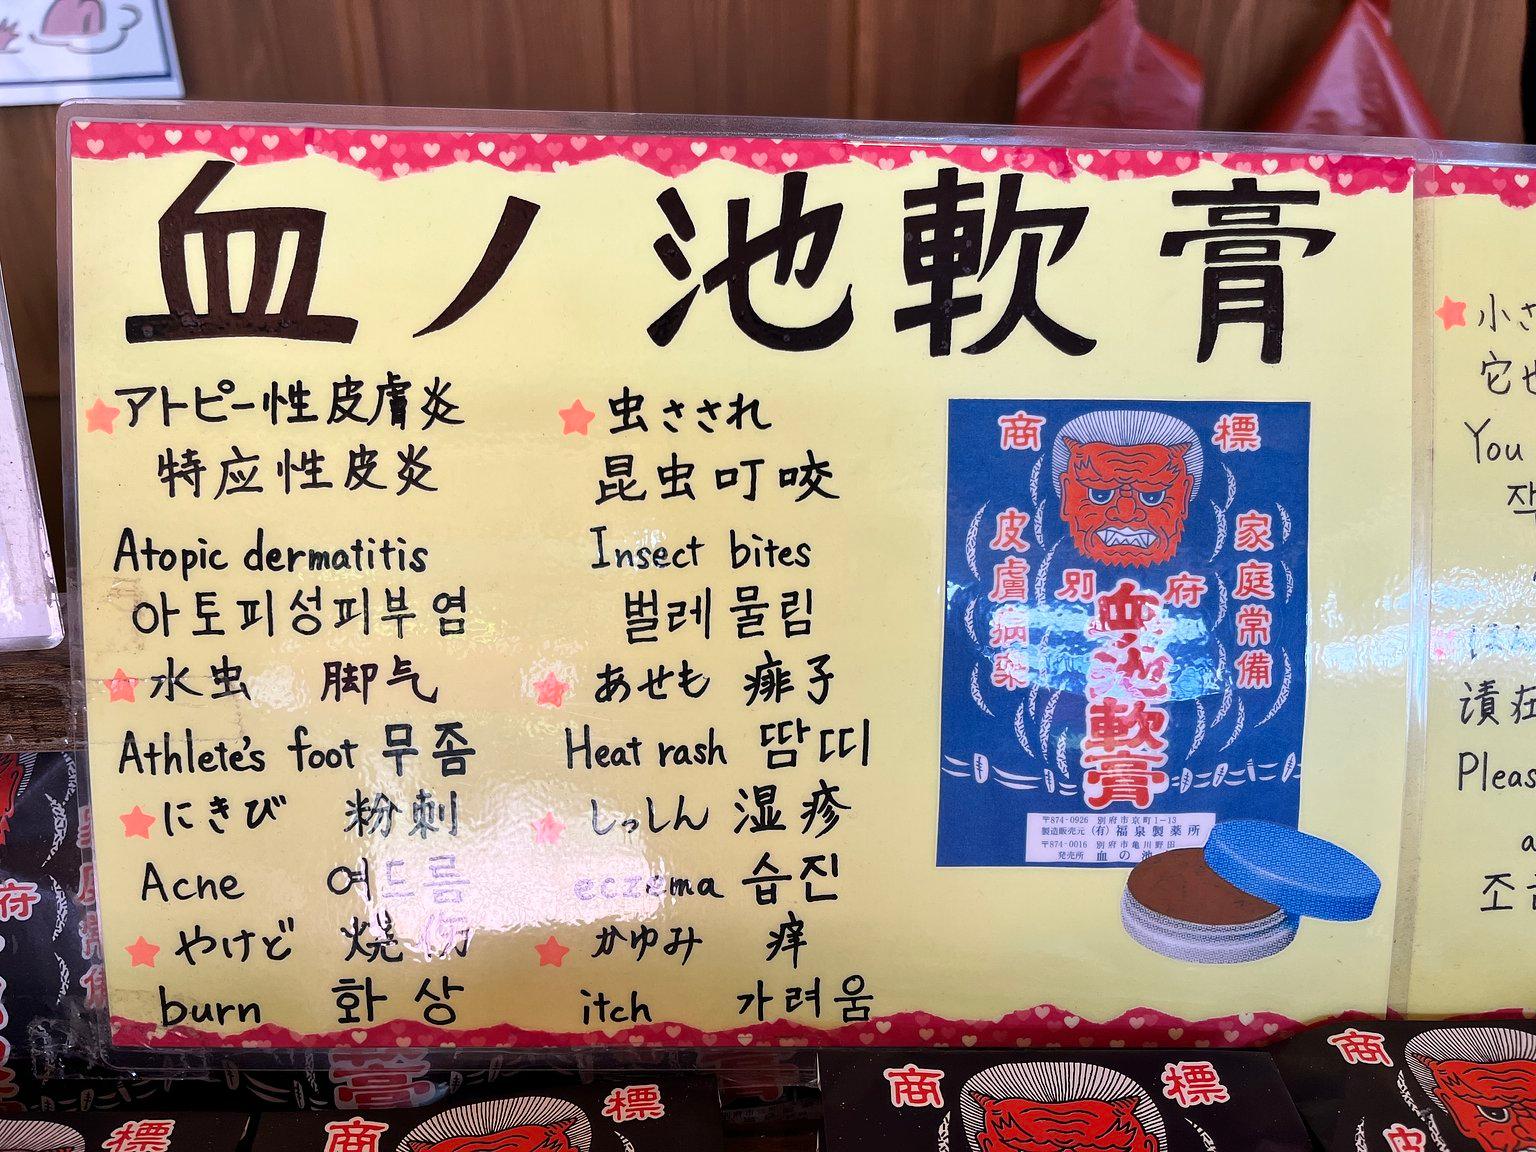 血ノ池軟膏
アトピー性皮膚炎
特应性皮炎
Atopic dermatitis
아토피성피부염
水虫 脚气
Athlete's foot 무좀
にきび 粉刺
Acne 여드름
やけど 燒伤
burn 화상
虫さされ
昆虫叮咬
Insect bites
벌레물림
あせも 痱子
Heat rash 땀띠
しっしん 湿疹
eczema 습진
かゆみ 痒
itch 가려움
商標
家庭常備
皮膚病薬
別府
血ノ池軟膏
〒874-0926 別府市京町1-13
製造販売元 (有)福泉製薬所
〒874-0016 別府市亀川野田
発売所 血の池
小さ
它也
You
작
漬在
Pleas
조금
商標
商標
商
皮
府